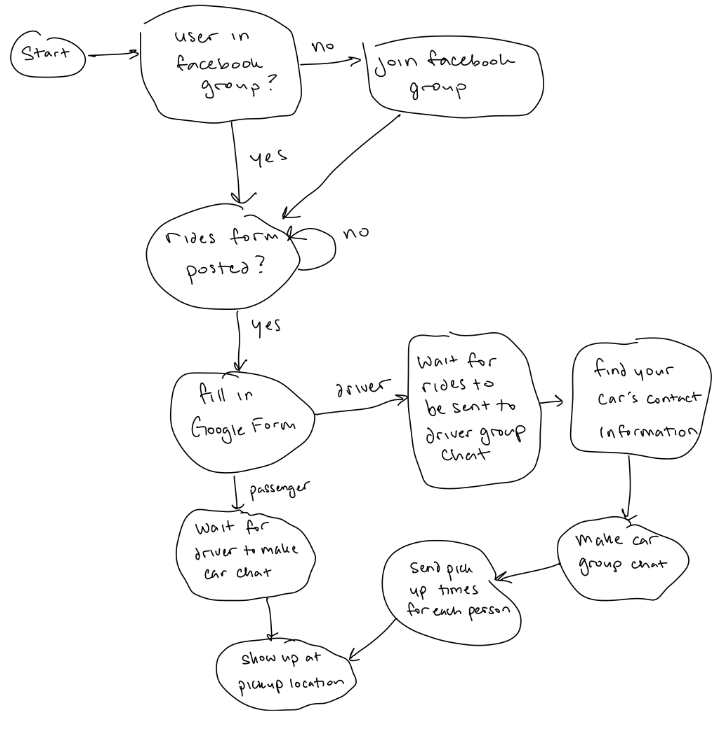 Start
user in
facebook
group?
no
join facebook
group
yes
rides form
posted?
no
yes
fill in
Google Form
driver
wait for
rides to
be sent to
driver group
chat
find your
car's contact
information
passenger
wait for
driver to make
car chat
make car
group chat
send pick
up times
for each person
show up at
pickup location